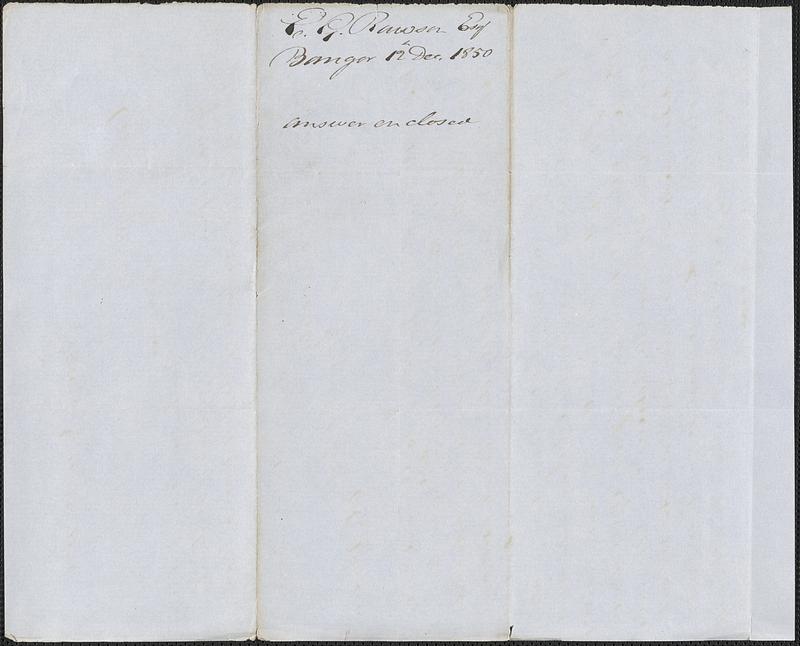 E. G. Rawson Esq
Bangor 12th Dec. 1850
answer enclosed